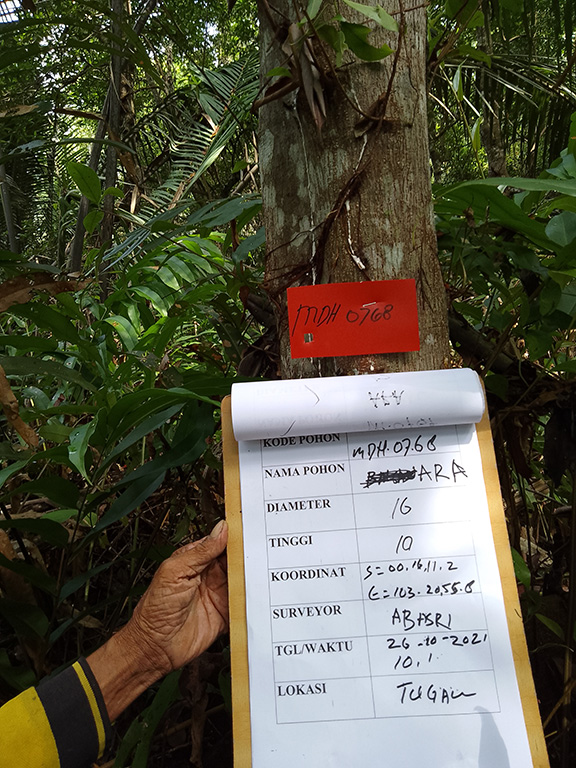 MDH 0768
KODE POHON mDH.0768
NAMA POHON ARA
DIAMETER 16
TINGGI 10
KOORDINAT S=00.16.11.2
E=103.2055.8
SURVEYOR ABASRI
TGL/WAKTU 26-10-2021
10.1
LOKASI